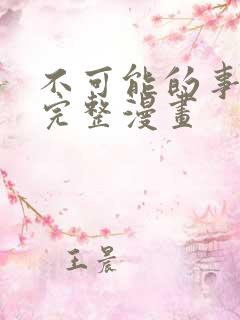 不可能的事
完整漫畫
王晨